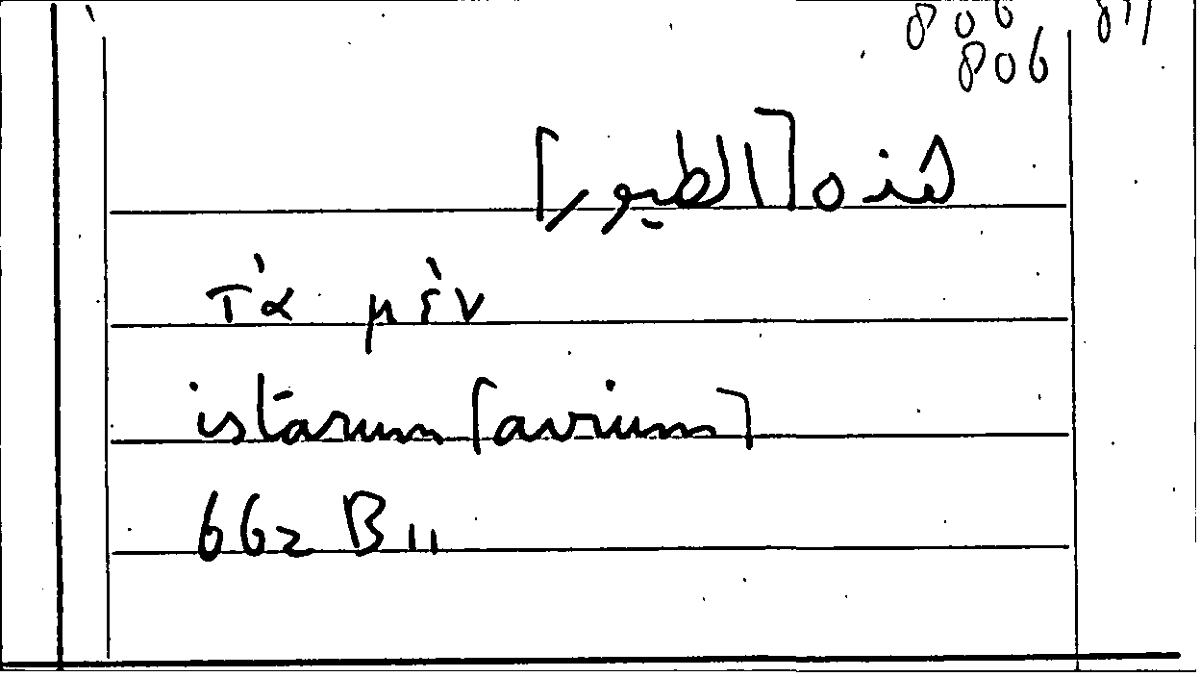 806
806
هذه [الطيور]
τὰ μὲν
istarum [avium]
662 B 11